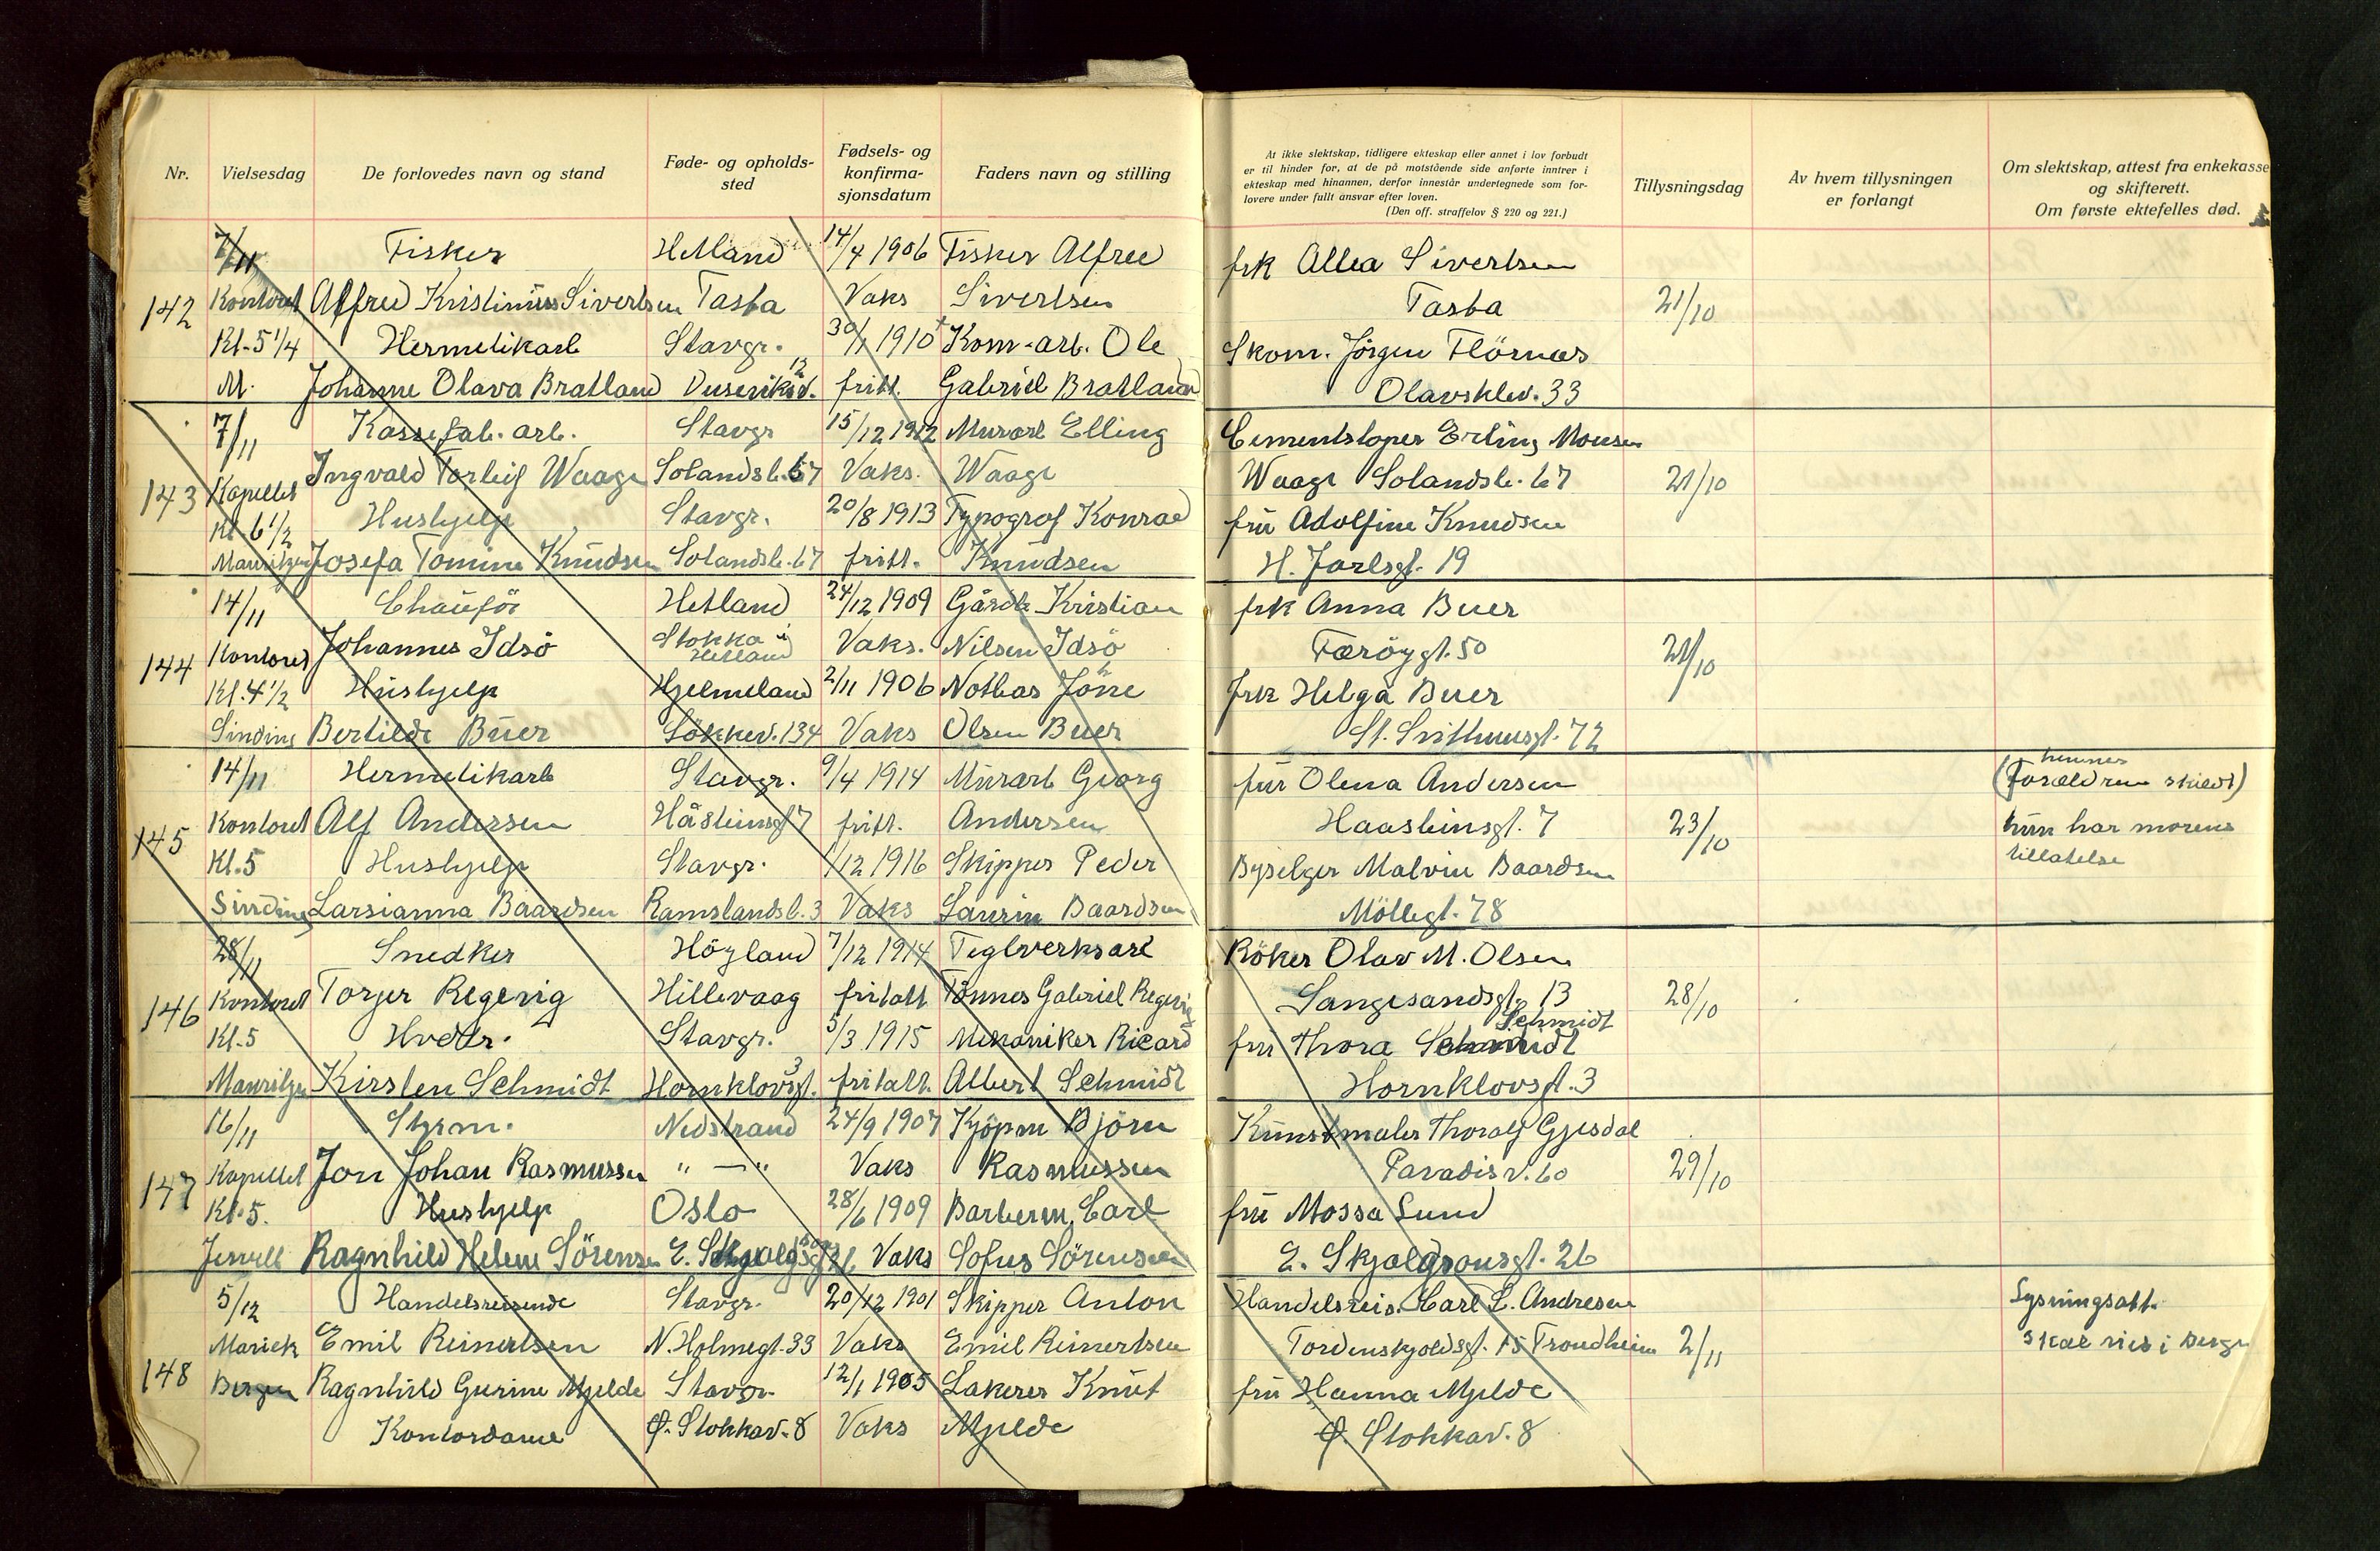 Nr.
Vielsesdag
De forlovedes navn og stand
Føde- og opholds-
sted
Fødsels- og
konfirma-
sjonsdatum
Faders navn og stilling
At ikke slektskap, tidligere ekteskap eller annet i lov forbudt
er til hinder for, at de på motstående side anførte inntrer i
ekteskap med hinannen, derfor innestår undertegnede som for-
lovere under fullt ansvar efter loven.
(Den off. straffelov § 220 og 221.)
Tillysningsdag
Av hvem tillysningen
er forlangt
Om slektskap, attest fra enkekasse
og skifterett.
Om første ektefelles død.
7/11 Fisker Hetland 14/4 1906 Fisker Alfred frk Allea Sivertsen
142 Kontoret Alfred Kristinius Sivertsen Tasta Vaks Sivertsen Tasta 21/10
Kl. 5 1/4 Hermetikarb Stavgr. 30/1 1910 Kom-arb. Ole Skom. Jörgen Flörnæs
M. Johanne Olava Bratland 12 fritt. Gabriel Bratland Olavsklev. 33
7/11 Kassefab. arb. Stavgr 15/12 1912 Murarb Elling Cementstøper Erling Monsen
143 Kapellet Ingvald Torleif Waage Solandsb. 67 Vaks. Waage Waage Solandsb. 67 21/10
Kl. 6 1/2 Hushjelp Stavgr. 20/8 1913 Typograf Konrad fru Adolfine Knudsen
Mauritzen Josefa Tomine Knudsen Solandsb. 67 fritt. Knudsen H. Jarlsgt. 19
14/11 Chauför Hetland 24/12 1909 Gårdb Kristian frk Anna Buer
144 Kontoret Johannes Idsö Stokka i Hetland Vaks. Nilsen Idsö Færöygt. 50 21/10
Kl. 4 1/2 Hushjelp Hjelmeland 2/11 1906 Notbas Jöne frk Helga Buer
Sinding Bertilde Buer Stökkev. 134 Vaks Olsen Buer St. Svithunsgt. 72
14/11 Hermetikarb Stavgr. 9/4 1914 Murarb Georg fru Olena Andersen (hennes Foreldrene skildt)
145 Kontoret Alf Andersen Håsteinsgt 7 fritt. Andersen Haasteinsgt. 7 23/10 hun har morens
Kl. 5 Hushjelp Stavgr. 1/12 1916 Skipper Peder Byselger Malvin Baardsen tillatelse
Sinding Larsianna Baardsen Ramslandsb. 3 Vaks Laurin Baardsen Möllegt. 78
28/11 Snedker Höyland 7/12 1914 Teglverksarb Röker Olav M. Olsen
146 Kontoret Torjer Regevig Hillevaag fritatt Tönnes Gabriel Regevig Langesandsgt. 13 28/10
Kl. 5 Hvdtr. Stavgr. 5/3 1915 Mekaniker Ricard fru Thora Schmidt Schmidt
Mauritzen Kirsten Schmidt Hornklovsgt. 3 fritatt. Albert Schmidt Hornklovsgt. 3
16/11 Styrm. Nedstrand 24/9 1907 Kjöpm Björn Kunstmaler Thoralf Gjesdal
147 Kapellet Jon Johan Rasmussen " — " Vaks Rasmussen Paradisv. 60 29/10
Kl. 5. Hushjelp Oslo 28/6 1909 Barberm. Carl fru Mossa Lund
Ragnhild Helene Sörensen Vaks Sofus Sörensen E. Skjolgsonsgt. 26
5/12 Handelsreisende Stavgr. 20/12 1901 Skipper Anton Handelsreis. Carl L. Andresen Lysningsatt.
Mariek Emil Reinertsen N. Holmegt. 33 Vaks Emil Reinertsen Tordenskjoldsgt. 15 Trondheim 2/11 skal vies i Bergn
148 Bergen Ragnhild Gurine Mjelde Stavgr. 12/1 1905 Lakerer Knut fru Hanna Mjelde
Kontordame Ø. Stokkav. 8 Vaks Mjelde Ø. Stokkav. 8